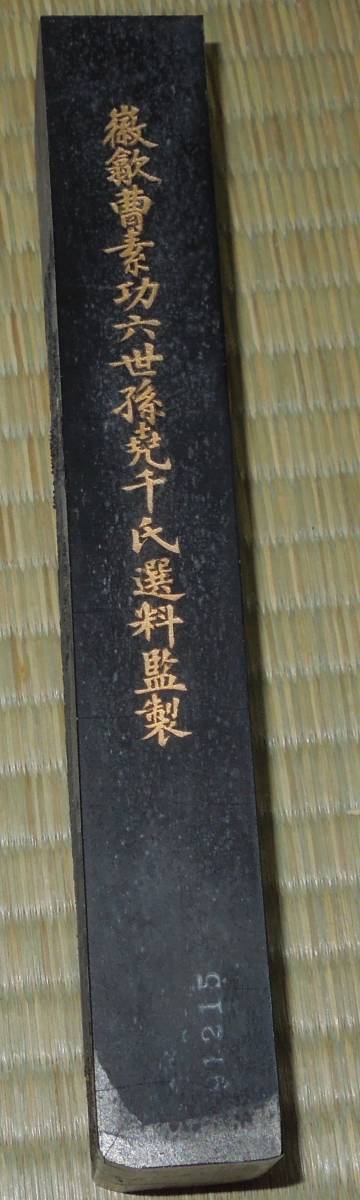 徽歙曹素功六世孫堯千氏選料監製
91215